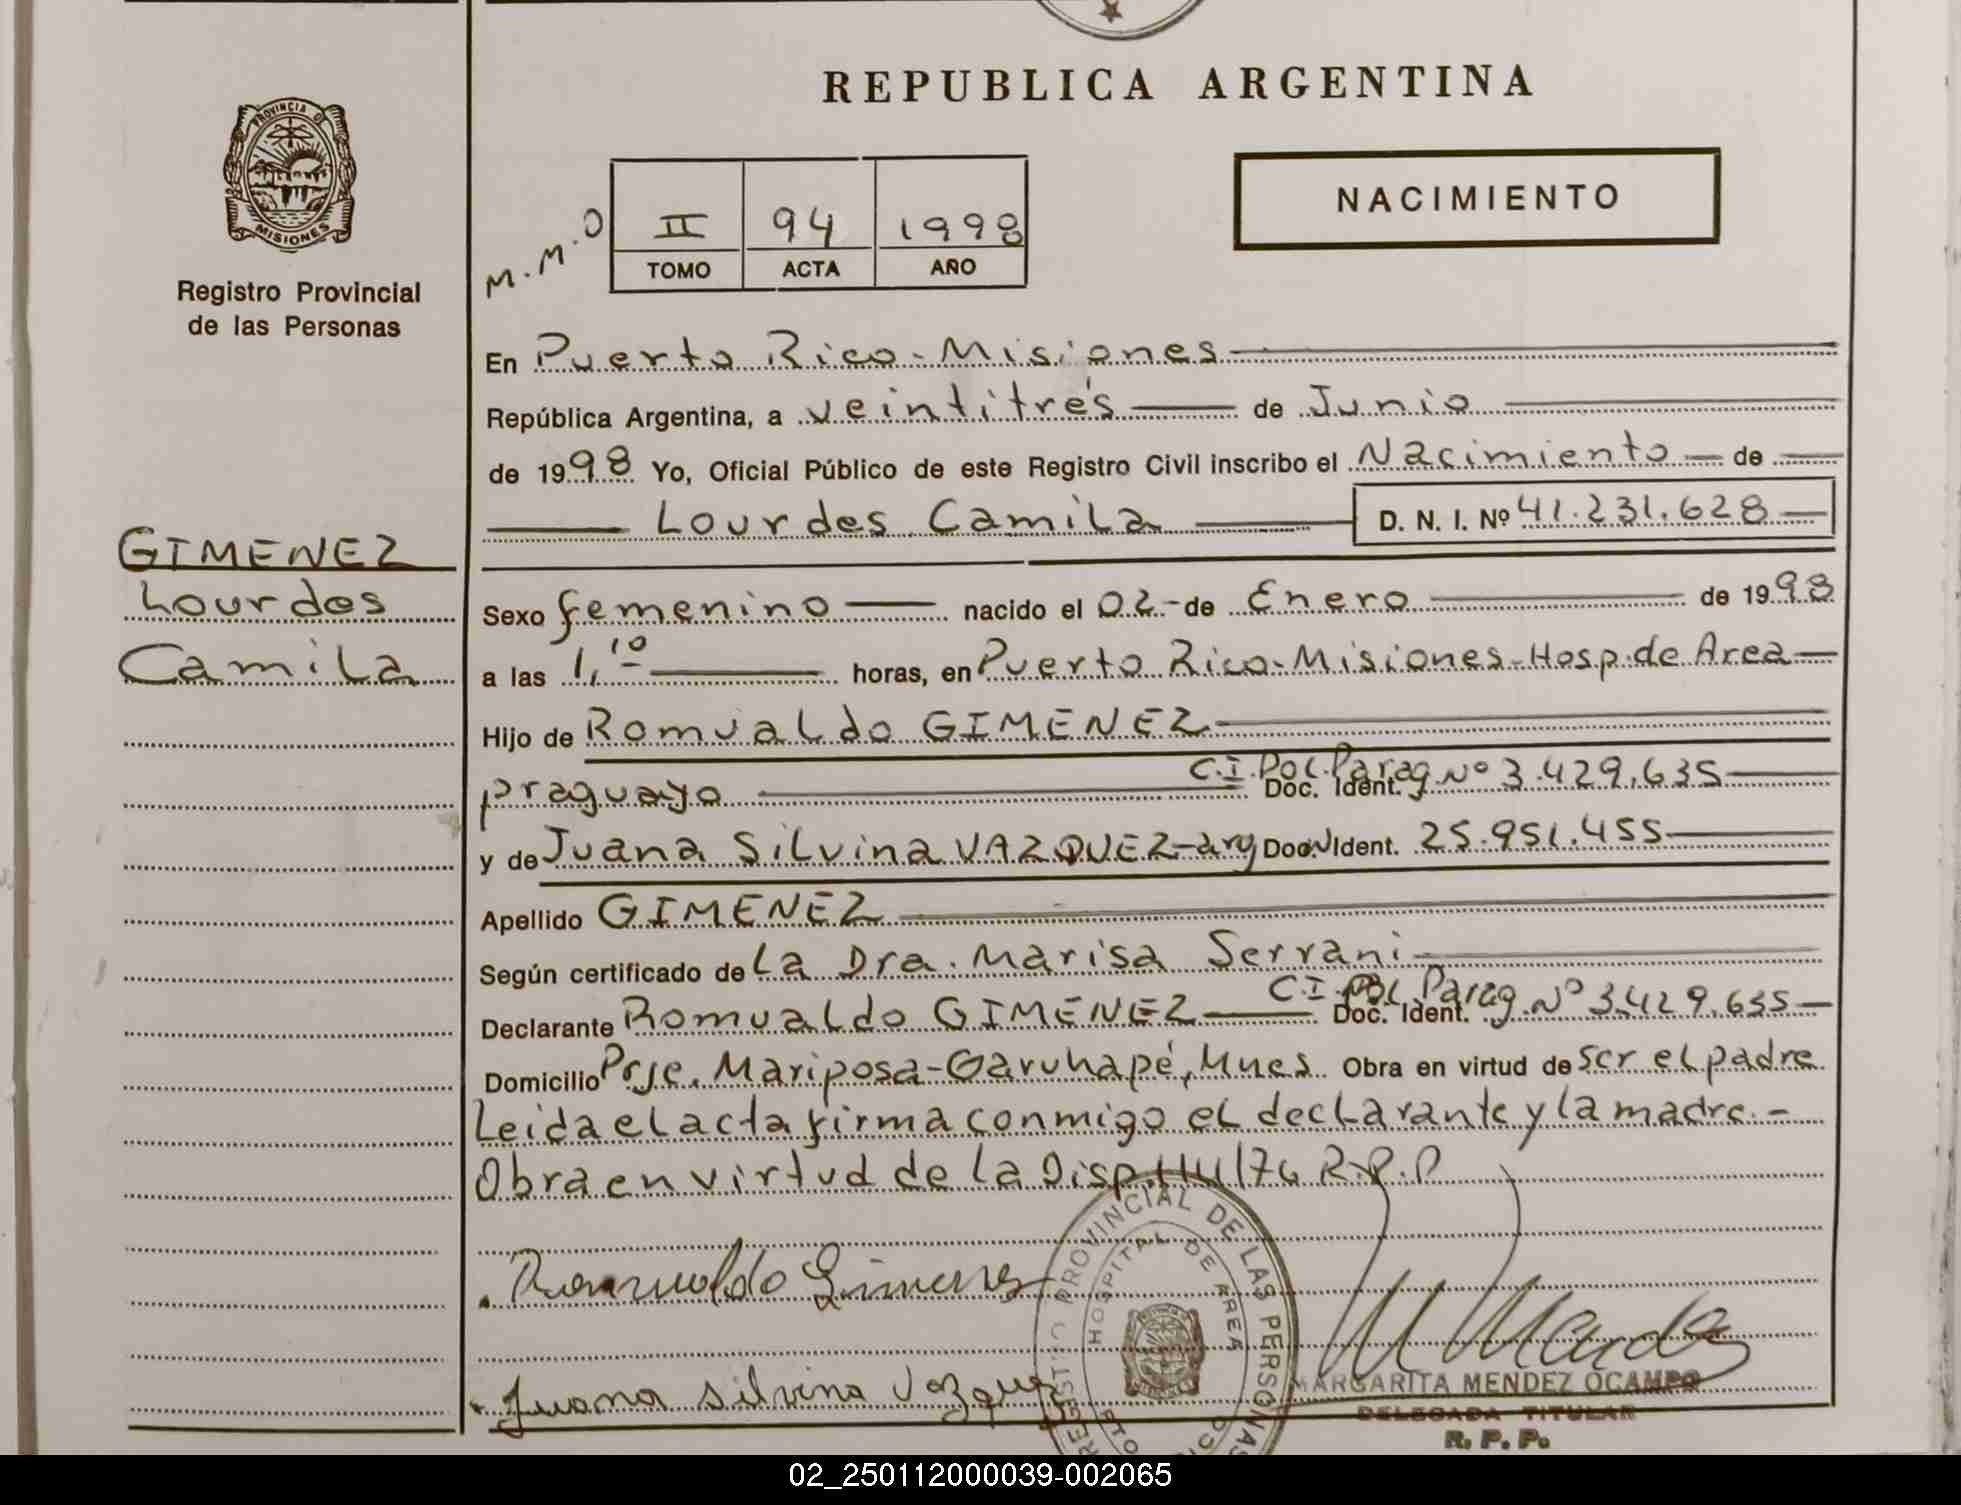 REPUBLICA ARGENTINA
PROVINCIA DE
MISIONES
Registro Provincial
de las Personas
NACIMIENTO
M.M.O
II 94 1998
TOMO ACTA AÑO
En Puerto Rico - Misiones
República Argentina, a veintitrés de Junio
de 1998 Yo, Oficial Público de este Registro Civil inscribo el Nacimiento de
Lourdes Camila D. N. I. Nº 41.231.628
GIMENEZ
Lourdes
Camila
Sexo femenino nacido el 02 - de Enero de 1998
a las 1,10 horas, en Puerto Rico - Misiones - Hosp. de Area
Hijo de Romualdo GIMENEZ
praguayo Doc. Ident. C.I. Pol. Parag. Nº 3.429.635
y de Juana Silvina VAZQUEZ - arg Doc. Ident. 25.951.455
Apellido GIMENEZ
Según certificado de La Dra. Marisa Serrani
Declarante Romualdo GIMENEZ Doc. Ident. C.I. Pol. Parag. Nº 3.429.635
Domicilio Prje. Mariposa - Garuhapé, Mnes Obra en virtud de ser el padre
Leida el acta firma conmigo el declarante y la madre. -
Obra en virtud de la Disp. 114/76 R.P.P
Romualdo Gimenez
Juana Silvina Vazquez
REGISTRO PROVINCIAL DE LAS PERSONAS
HOSPITAL DE AREA
M Mendez
MARGARITA MENDEZ OCAMPO
DELEGADA TITULAR
R. P. P.
02_250112000039-002065